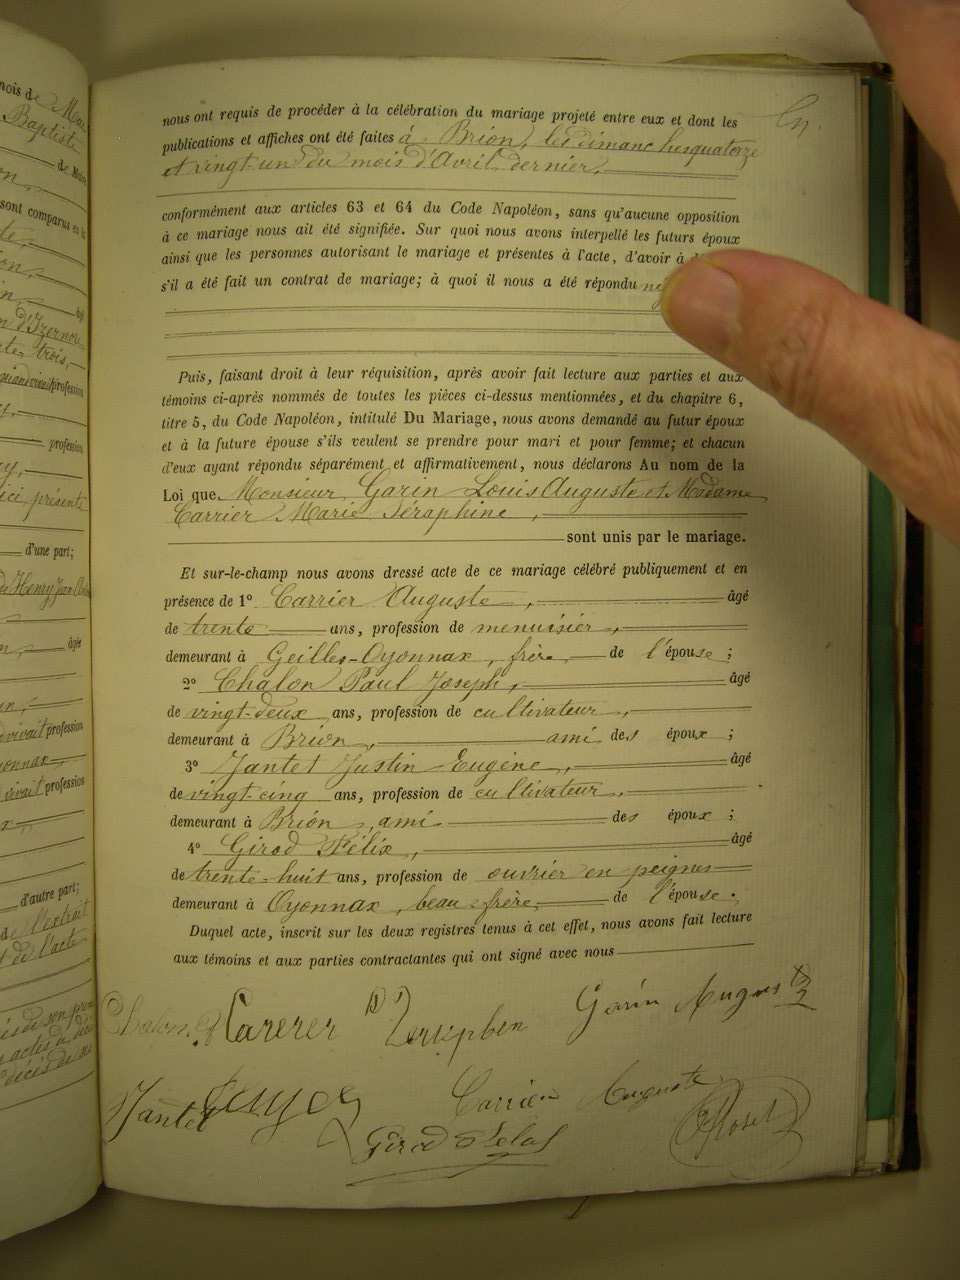 nois de Mai
Baptiste
de Maire
sont comparus
d'Izernore
trois,
profession
profession
ici présente
d'une part;
Henry Jean
âgée
vivait profession
Oyonnax
vivait profession
d'autre part;
l'extrait
de l'acte
nous ont requis de procéder à la célébration du mariage projeté entre eux et dont les
publications et affiches ont été faites à Brion, les dimanches quatorze
et vingt-un du mois d'Avril dernier,
conformément aux articles 63 et 64 du Code Napoléon, sans qu'aucune opposition
à ce mariage nous ait été signifiée. Sur quoi nous avons interpellé les futurs époux
ainsi que les personnes autorisant le mariage et présentes à l'acte, d'avoir à
s'il a été fait un contrat de mariage; à quoi il nous a été répondu
Puis, faisant droit à leur réquisition, après avoir fait lecture aux parties et aux
témoins ci-après nommés de toutes les pièces ci-dessus mentionnées, et du chapitre 6,
titre 5, du Code Napoléon, intitulé Du Mariage, nous avons demandé au futur époux
et à la future épouse s'ils veulent se prendre pour mari et pour femme; et chacun
d'eux ayant répondu séparément et affirmativement, nous déclarons Au nom de la
Loi que Monsieur Garin Louis Auguste et Madame
Carrier Marie Séraphine,
sont unis par le mariage.
Et sur-le-champ nous avons dressé acte de ce mariage célébré publiquement et en
présence de 1° Carrier Auguste, âgé
de trente ans, profession de menuisier,
demeurant à Geilles-Oyonnax, frère, de l'épouse;
2° Chalon Paul Joseph, âgé
de vingt-deux ans, profession de cultivateur,
demeurant à Brion, ami des époux;
3° Jantet Justin Eugène, âgé
de vingt-cinq ans, profession de cultivateur,
demeurant à Brion, ami des époux;
4° Girod Félix, âgé
de trente-huit ans, profession de ouvrier en peignes
demeurant à Oyonnax, beau-frère, de l'épouse.
Duquel acte, inscrit sur les deux registres tenus à cet effet, nous avons fait lecture
aux témoins et aux parties contractantes qui ont signé avec nous
Chalon Garin August
Jantet Carrier Auguste
Girod